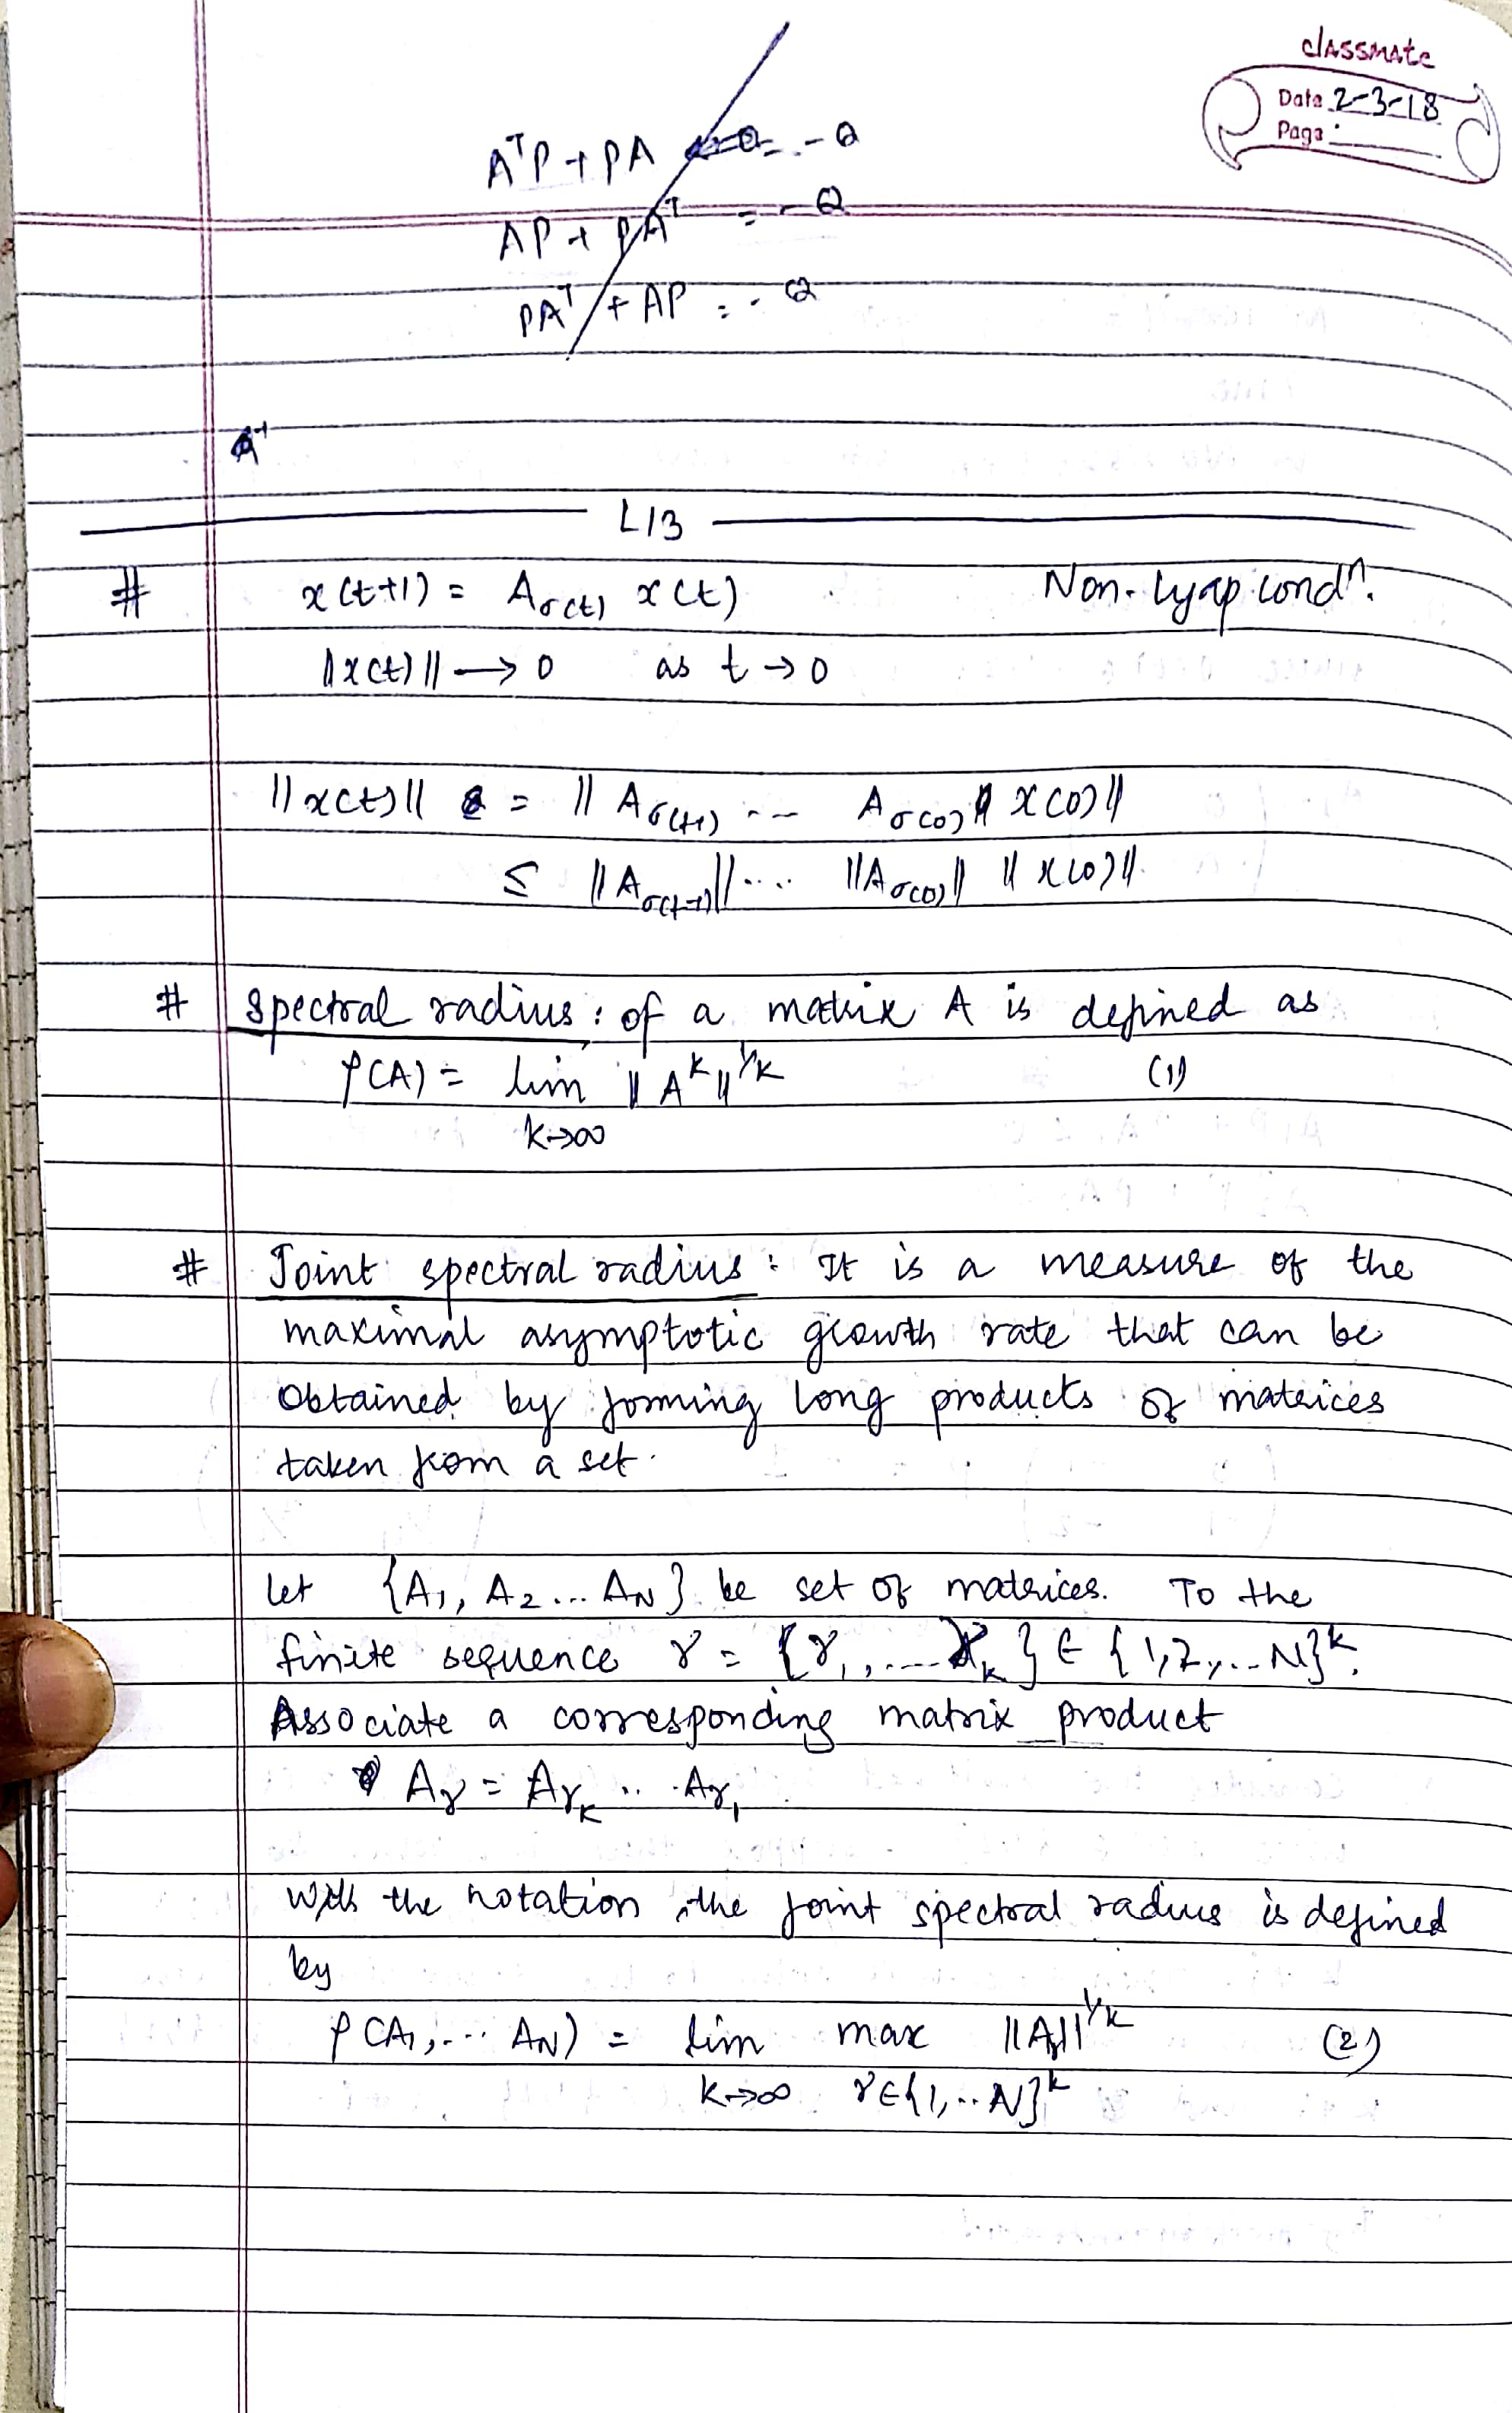 classmate
Date 2-3-18
Page
AᵀP + PA = -Q
AP + PAᵀ = -Q
PAᵀ + AP = -Q
L13
# x(t+1) = A_σ(t) x(t) Non-Lyap condⁿ.
||x(t)|| → 0 as t → 0
||x(t)|| = || A_σ(t-1) ... A_σ(0) x(0)||
≤ ||A_σ(t-1)|| .... ||A_σ(0)|| ||x(0)||.
# Spectral radius : of a matrix A is defined as
ρ(A) = lim ||A^k||^1/k (1)
k→∞
# Joint spectral radius : It is a measure of the
maximal asymptotic growth rate that can be
obtained by forming long products of matrices
taken from a set.
Let {A₁, A₂ ... A_N} be set of matrices. To the
finite sequence γ = {γ₁, .... γ_k} ∈ {1,2,...N}^k.
Associate a corresponding matrix product
A_γ = A_γ_k ... A_γ₁.
With the notation, the joint spectral radius is defined
by
ρ(A₁, ... A_N) = lim max ||A_γ||^1/k (2)
k→∞ γ∈{1,..N}^k